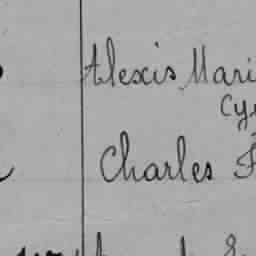 Alexis Mari
Cy
Charles F